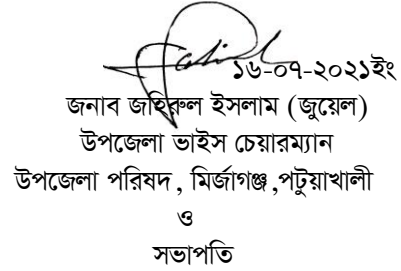 ১৬-০৭-২০২১ইং
জনাব জহিরুল ইসলাম (জুয়েল)
উপজেলা ভাইস চেয়ারম্যান
উপজেলা পরিষদ , মির্জাগঞ্জ ,পটুয়াখালী
ও
সভাপতি